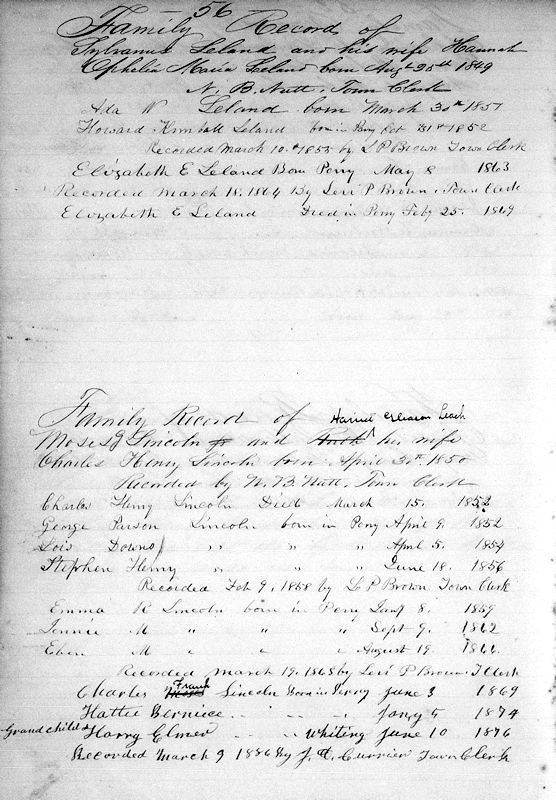 — 56
Family Record of
Sylvanus Leland and his wife Hannah
Ophelia Maria Leland born Augt 25th 1849
N. B. Nutt. Town Clerk
Ada W Leland born March 30th 1851
Howard Kimball Leland born in Perry Oct 1852
Recorded March 10th 1855 by L P Brown Town Clerk
Elizabeth E Leland Born Perry May 8 1863
Recorded March 18. 1864 By Levi P Brown. Town Clerk
Elizabeth E Leland Died in Perry Feby 25. 1869
Family Record of Harriet Gleason Leach
Moses Lincoln and his wife
Charles Henry Lincoln born April 30th 1850
Recorded by N. B. Nutt. Town Clerk
Charles Henry Lincoln Died March 15. 1852
George Parson Lincoln born in Perry April 9. 1852
Lois Downs " " " April 5. 1854
Stephen Henry " " " June 18. 1856
Recorded Feb 9, 1858 by L P Brown Town Clerk
Emma R Lincoln born in Perry Jany 8. 1859
Jennie M " " " Sept 9. 1862
Eben M " " " August 19.
Recorded March 19. 1868 by Levi P Brown. T Clerk
Charles Frank Lincoln Born in Perry June 3 1869
Hattie Bernice " " " Janry 5 1874
Grandchild Harry Elmer " " Whiting June 10 1876
Recorded March 9 1886 By J. A. Currier Town Clerk